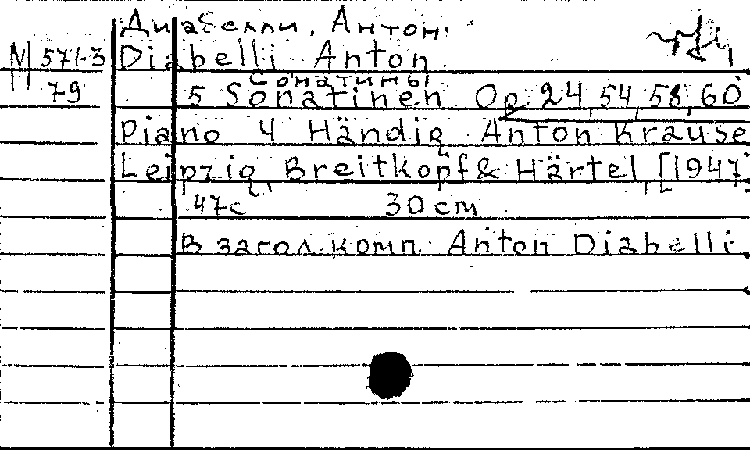 Диабелли, Антон.
М 571-3 Diabelli Anton
Сонатины
79 5 Sonatinen Op 24, 54, 58, 60
Piano 4 Händig Anton Krause
Leipzig, Breitkopf & Härtel, [1947
47с 30 cm
В загол. комп. Anton Diabelli.